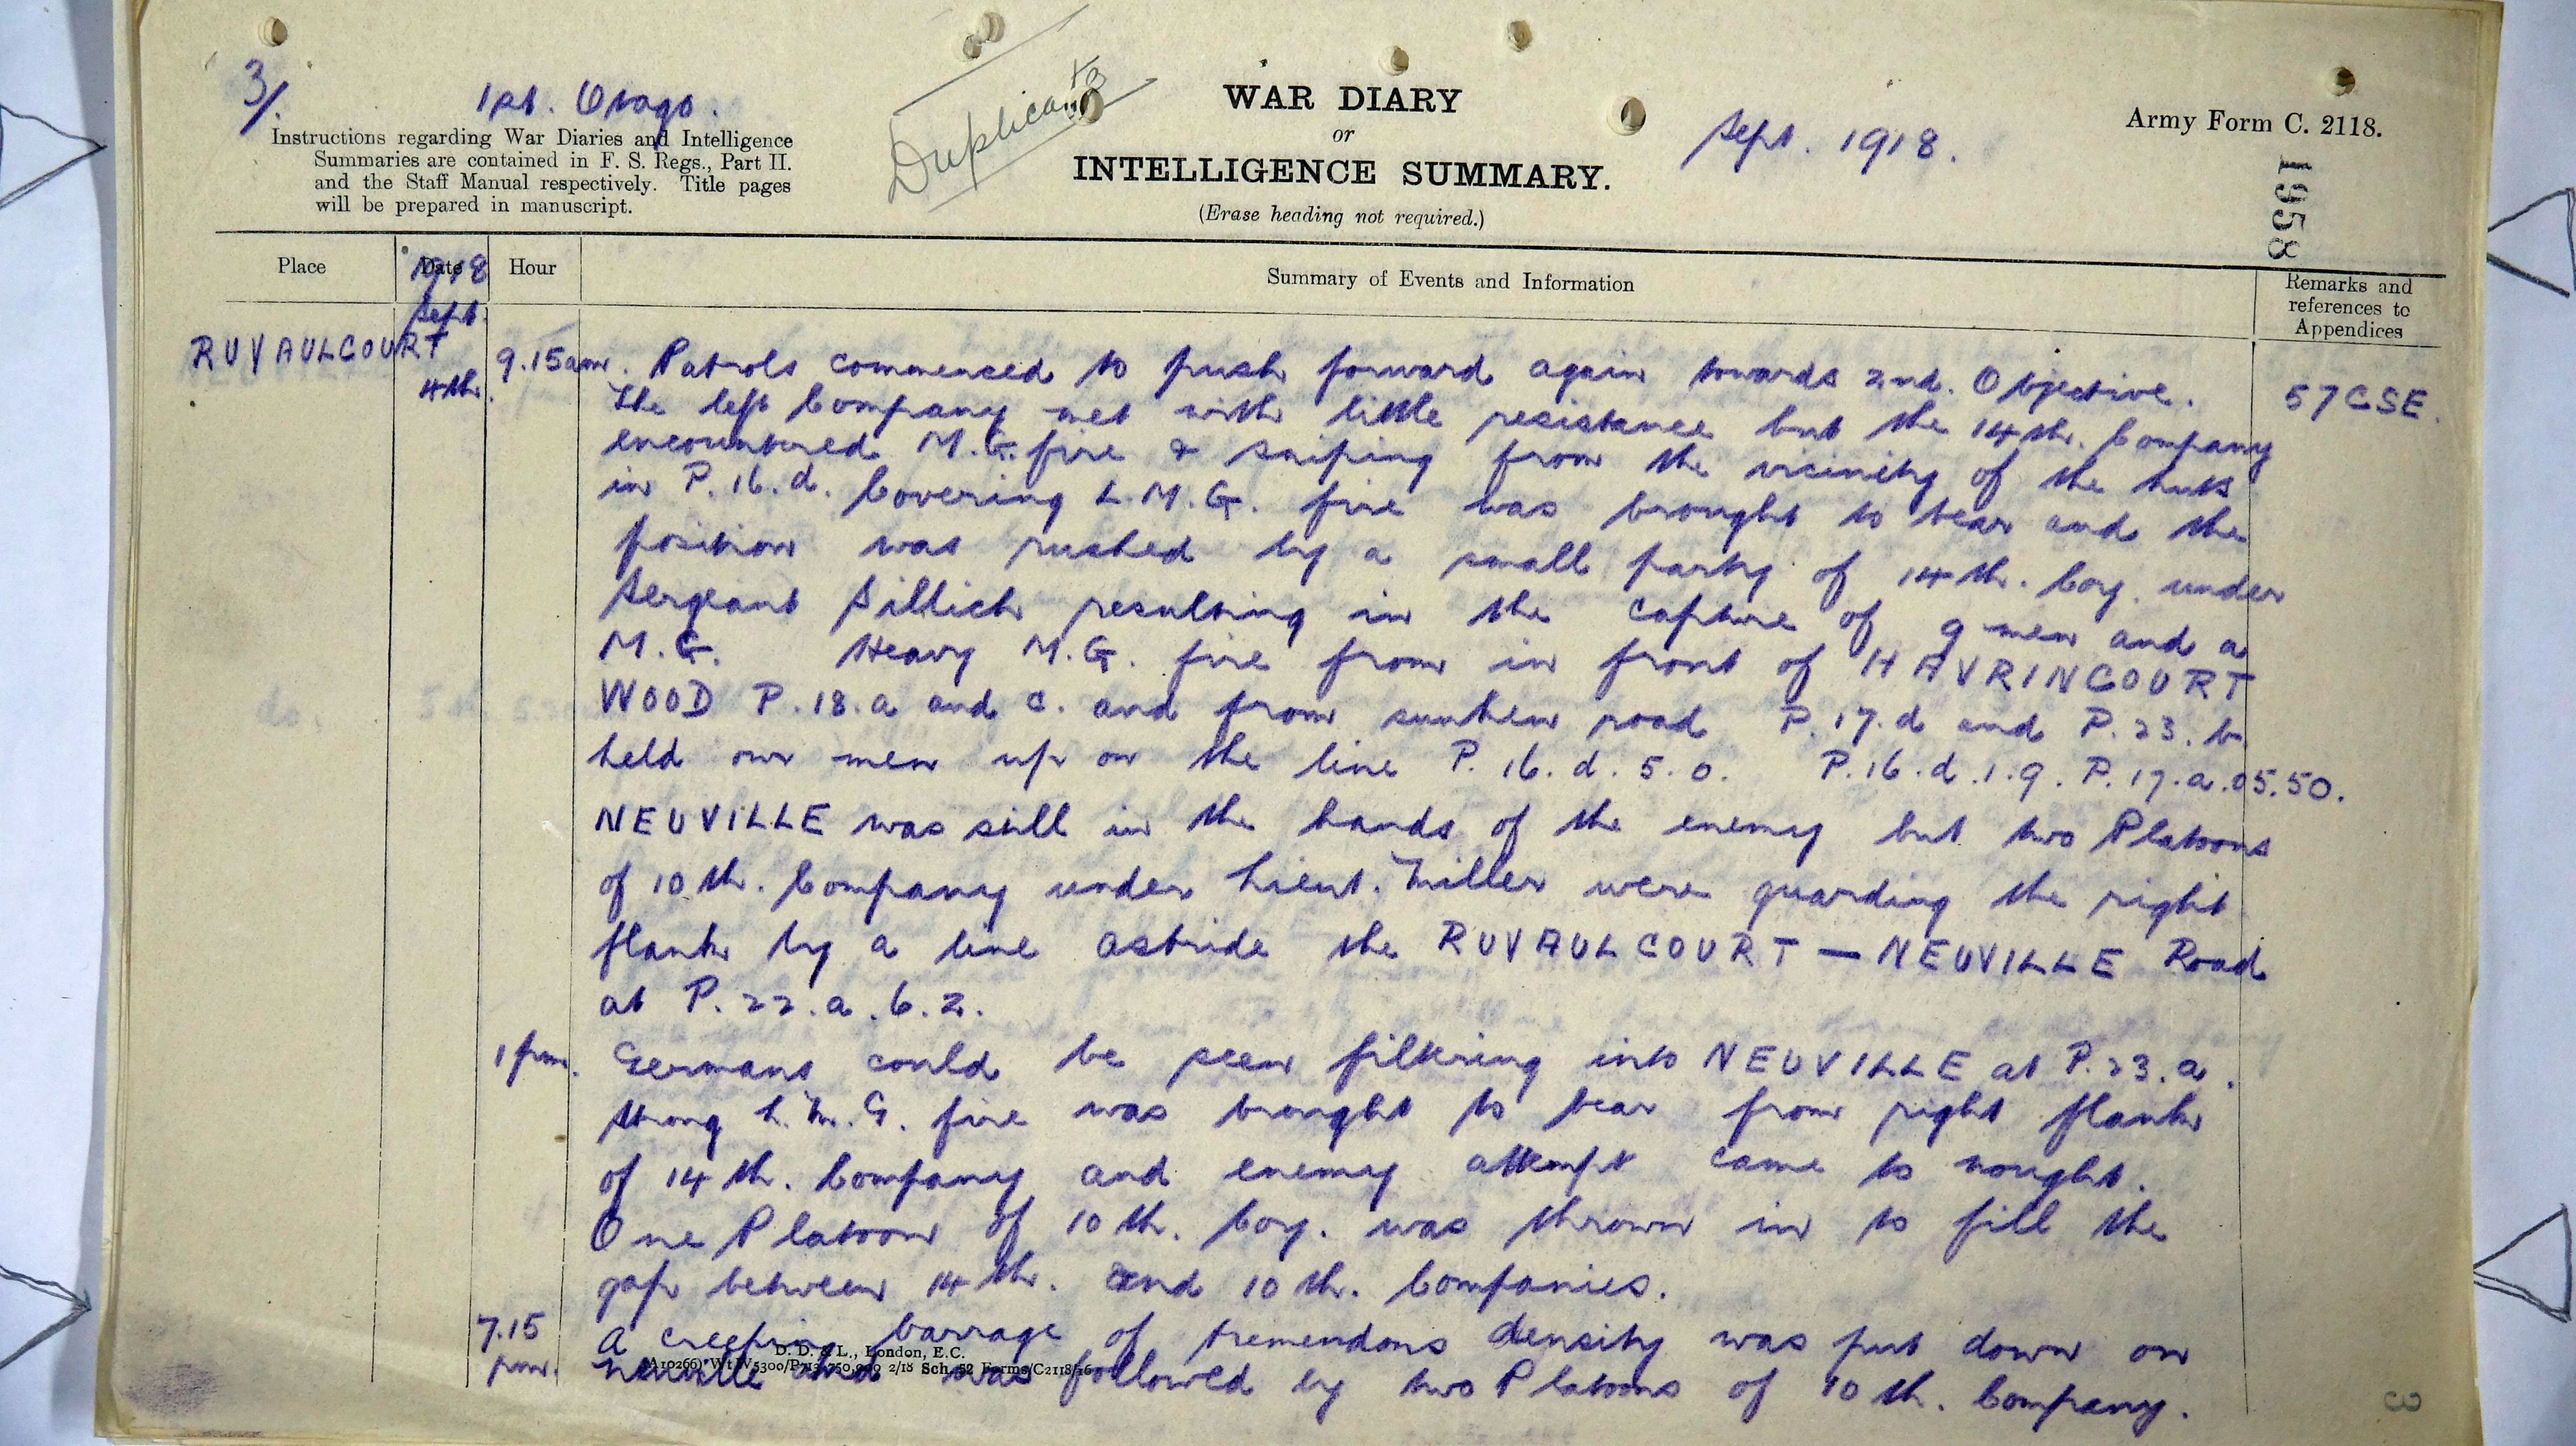 3/.
1st. Otago.
Instructions regarding War Diaries and Intelligence
Summaries are contained in F. S. Regs., Part II.
and the Staff Manual respectively. Title pages
will be prepared in manuscript.
Duplicate
WAR DIARY
or
INTELLIGENCE SUMMARY.
(Erase heading not required.)
Sept. 1918.
Army Form C. 2118.
1958
Place
Date
1918
Hour
Summary of Events and Information
Remarks and
references to
Appendices
Sept.
RUVAULCOURT
4th.
9.15am. Patrols commenced to push forward again towards 2nd. Objective.
57CSE.
The left Company met with little resistance but the 14th. Company
encountered M.G. fire & sniping from the vicinity of the huts
in P.16.d. Covering L.M.G. fire was brought to bear and the
position was rushed by a small party of 14th. Coy. under
Sergeant Sillich resulting in the capture of 9 men and a
M.G. Heavy M.G. fire from in front of HAVRINCOURT
WOOD P.18.a and c. and from sunken road P.17.d and P.23.b
held our men up on the line P.16.d.5.0. P.16.d.1.9. P.17.a.05.50.
NEUVILLE was still in the hands of the enemy but two Platoons
of 10th. Company under Lieut. Miller were guarding the right
flank by a line astride the RUVAULCOURT — NEUVILLE Road
at P.22.a.6.2.
1 pm. Germans could be seen filtering into NEUVILLE at P.23.a.
Strong L.M.G. fire was brought to bear from right flank
of 14th. Company and enemy attempt came to nought.
One Platoon of 10th. Coy. was thrown in to fill the
gap between 14th. and 10th. Companies.
7.15 A creeping barrage of tremendous density was put down on
pm. Neuville and was followed by two Platoons of 10th. Company.
D. D. & L., London, E.C.
2/18 Sch. 52 Forms/C2118/16
3